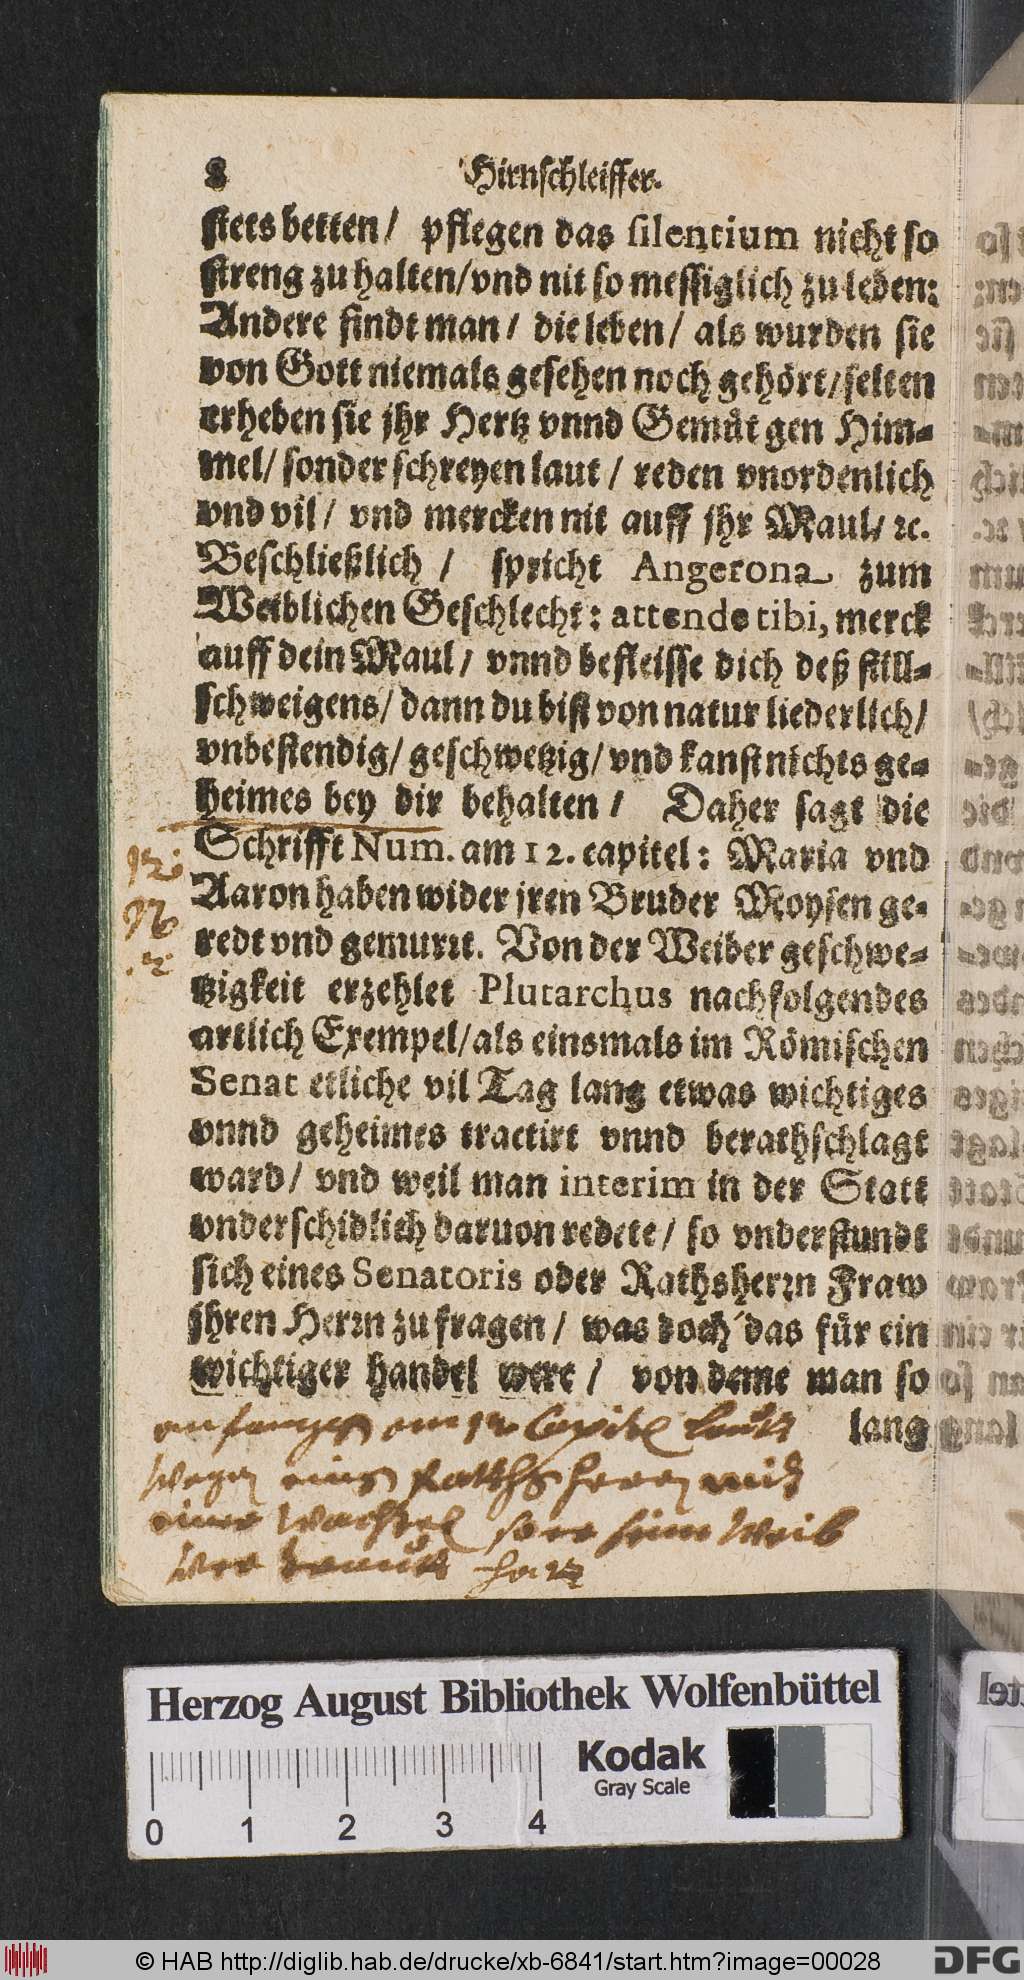 8 Hirnschleiffer.
stets betten/ pflegen das silentium nicht so
streng zu halten/vnd nit so messiglich zu leben:
Andere findt man/ die leben/ als wurden sie
von Gott niemals gesehen noch gehört/selten
erheben sie jhr Hertz vnnd Gemuͤt gen Him-
mel/ sonder schreyen laut/ reden vnordenlich
vnd vil/ vnd mercken nit auff jhr Maul/ ꝛc.
Beschließlich/ spricht Angerona zum
Weiblichen Geschlecht: attende tibi, merck
auff dein Maul/ vnnd befleisse dich deß still-
schweigens/ dann du bist von natur liederlich/
vnbestendig/ geschwetzig/ vnd kanst nichts ge-
heimes bey dir behalten/ Daher sagt die
Schrifft Num. am 12. capitel: Maria vnd
Aaron haben wider jren Bruder Moysen ge-
redt vnd gemurrt. Von der Weiber geschwe-
tzigkeit erzehlet Plutarchus nachfolgendes
artlich Exempel/als einsmals im Römischen
Senat etliche vil Tag lang etwas wichtiges
vnnd geheimes tractirt vnnd berathschlagt
ward/ vnd weil man interim in der Statt
vnderschidlich daruon redete/ so vnderstundt
sich eines Senatoris oder Rathsherrn Fraw
jhren Herrn zu fragen/ was doch das für ein
wichtiger handel were/ von deme man so
lang
Herzog August Bibliothek Wolfenbüttel
Kodak
Gray Scale
0 1 2 3 4
© HAB http://diglib.hab.de/drucke/xb-6841/start.htm?image=00028
DFG